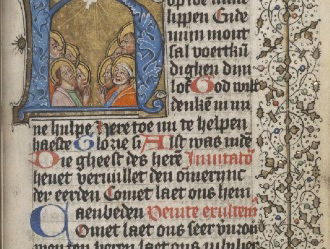 op doe mine
lippen Ende
mijn mont
sal voertkū
dighen dijn
lof God wilt
denkē in mi
ne hulpe Here toe mi te helpen
haeste Glorie s Alst was indē
Die gheest des herē Inuitato
heuet veruullet den omerinc
der eerden Comet laet ons hem
aenbeden Venite exultem
Comet laet ons seer
laet ons